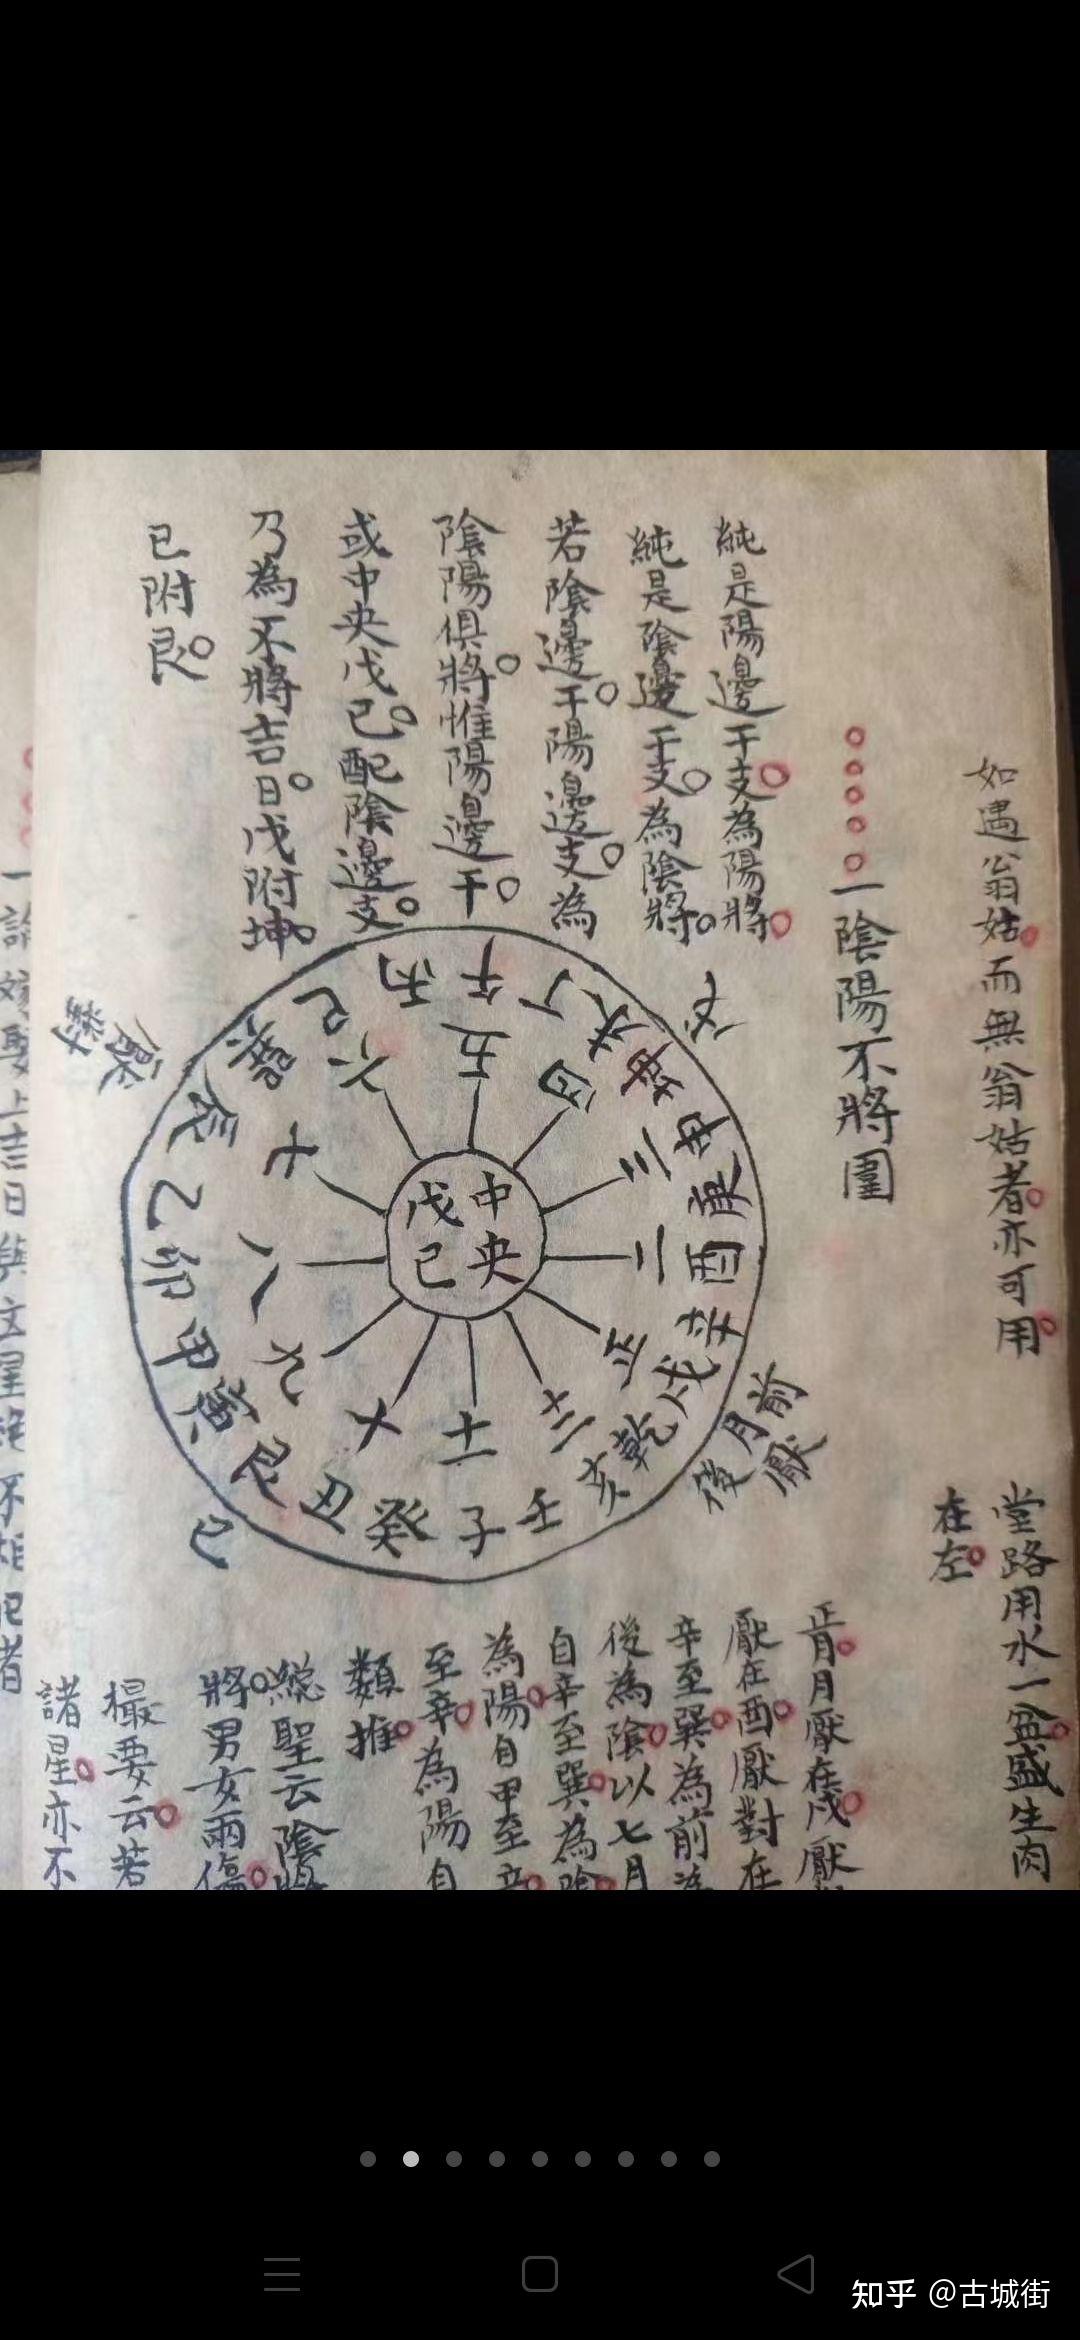 如遇翁姑而無翁姑者亦可用
堂路用水一盆盛生肉
在左
一陰陽不將圖
純是陽邊干支為陽將
純是陰邊干支為陰將
若陰邊干陽邊支為
陰陽俱將惟陽邊干
或中央戊己配陰邊支
乃為不將吉日戊附坤
己附艮
中央
戊己
午丁未坤申庚酉辛戌乾亥壬子癸丑艮寅甲卯乙辰巽巳丙
五四三二正十二十一十九八七六
戊
前厭
月
後
己
厭對
正月月厭在戌厭
厭在酉厭對在
辛至巽為前為
後為陰以七月
自辛至巽為陰
為陽自甲至辛
至辛為陽自
類推
總聖云陰將
將男女兩傷
撮要云若
諸星亦不
一論嫁娶上吉日與
不相犯者
知乎 @古城街